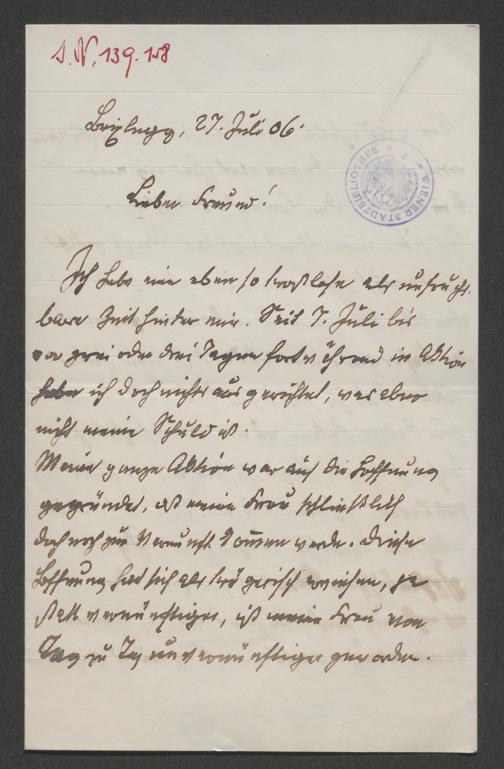 J. N. 139.158
WIENER STADTBIBLIOTHEK
Brixlegg, 27. Juli 06.
Lieber Freund!
Ich habe eine eben so trostlose als unfrucht-
bare Zeit hinter mir. Seit 7. Juli bis
vor zwei oder drei Tagen fortwährend in Aktion
habe ich doch nichts ausgerichtet, was aber
nicht meine Schuld ist.
Meine ganze Aktion war auf die Hoffnung
gegründet, daß meine Frau schließlich
doch noch zur Vernunft kommen werde. Diese
Hoffnung hat sich als trügerisch erwiesen, ja
statt vernünftiger, ist meine Frau von
Tag zu Tag unvernünftiger geworden.